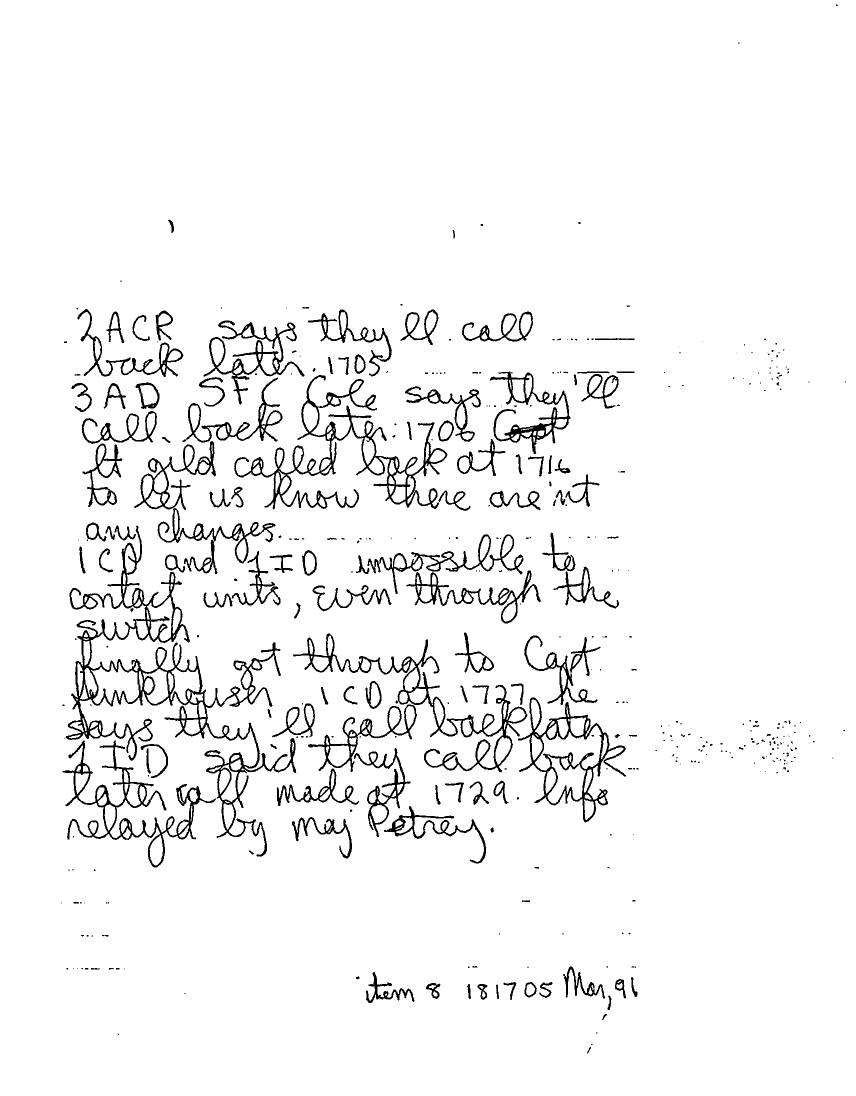 2ACR says they'll call
back later. 1705
3AD SFC Cole says they'll
call back later. 1706 Capt
Lt Gild called back at 1716
to let us know there are'nt
any changes.
1CD and 1ID impossible to
contact units, even through the
switch.
finally got through to Capt
funkhouser 1CD at 1727 he
says they'll call back later.
1ID said they call back
later call made at 1729. Info
relayed by Maj Petrey.
item 8 181705 Mar, 91